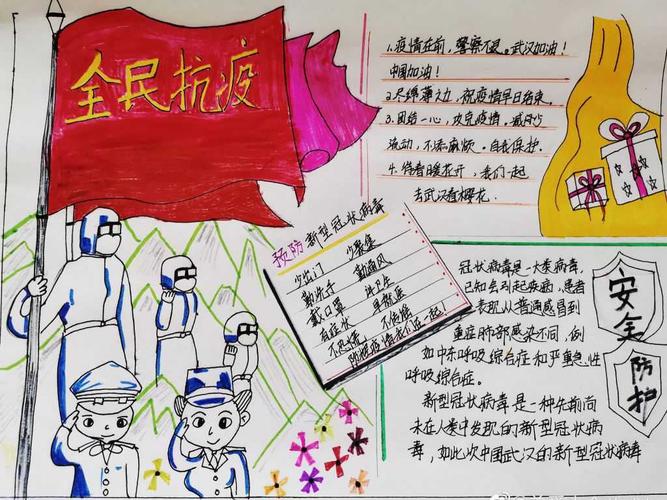 全民抗疫
1.疫情在前，警察不退。武汉加油！
中国加油！
2.尽绵薄之力，祝疫情早日结束。
3.团结一心，攻克疫情。减少
流动，不添麻烦。自我保护。
4.待春暖花开，我们一起
去武汉看樱花。
预防新型冠状病毒
少出门 少聚集
勤洗手 勤通风
戴口罩 讲卫生
有症状 早就医
不恐慌 不传谣
防控疫情我们在一起！
冠状病毒是一大类病毒，
已知会引起疾病，患者
表现从普通感冒到
重症肺部感染不同，例
如中东呼吸综合症和严重急性
呼吸综合症。
新型冠状病毒是一种先前尚
未在人类中发现的新型冠状病
毒，如此次中国武汉的新型冠状病毒
安全
防护